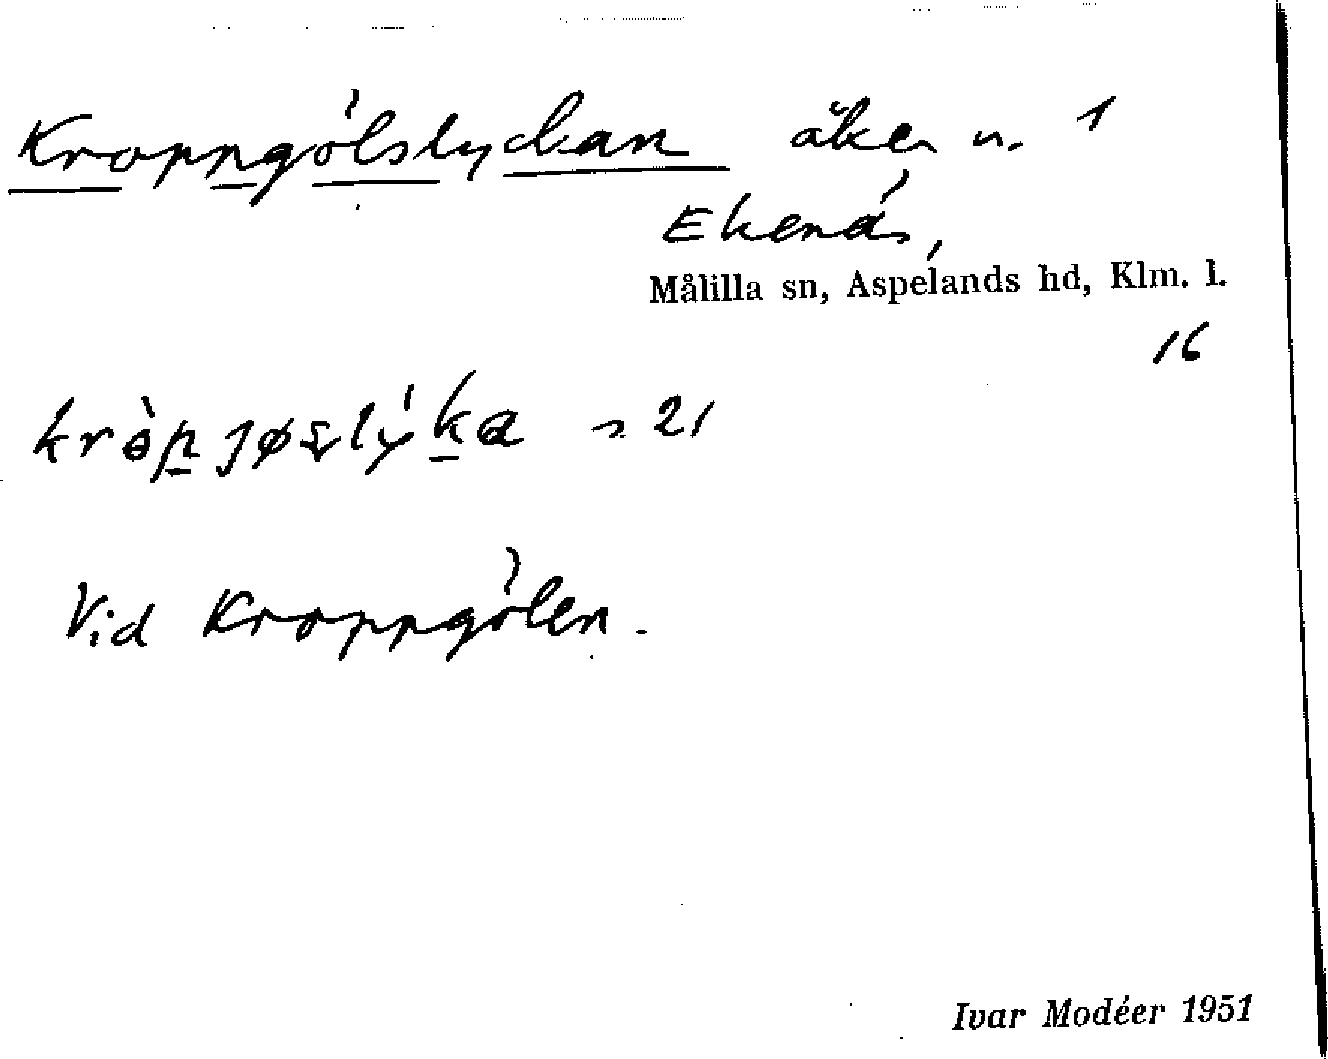 Kroppgölslyckan åker n. 1
Ekenäs,
Målilla sn, Aspelands hd, Klm. l.
16
21
Vid Kroppgölen.
Ivar Modéer 1951